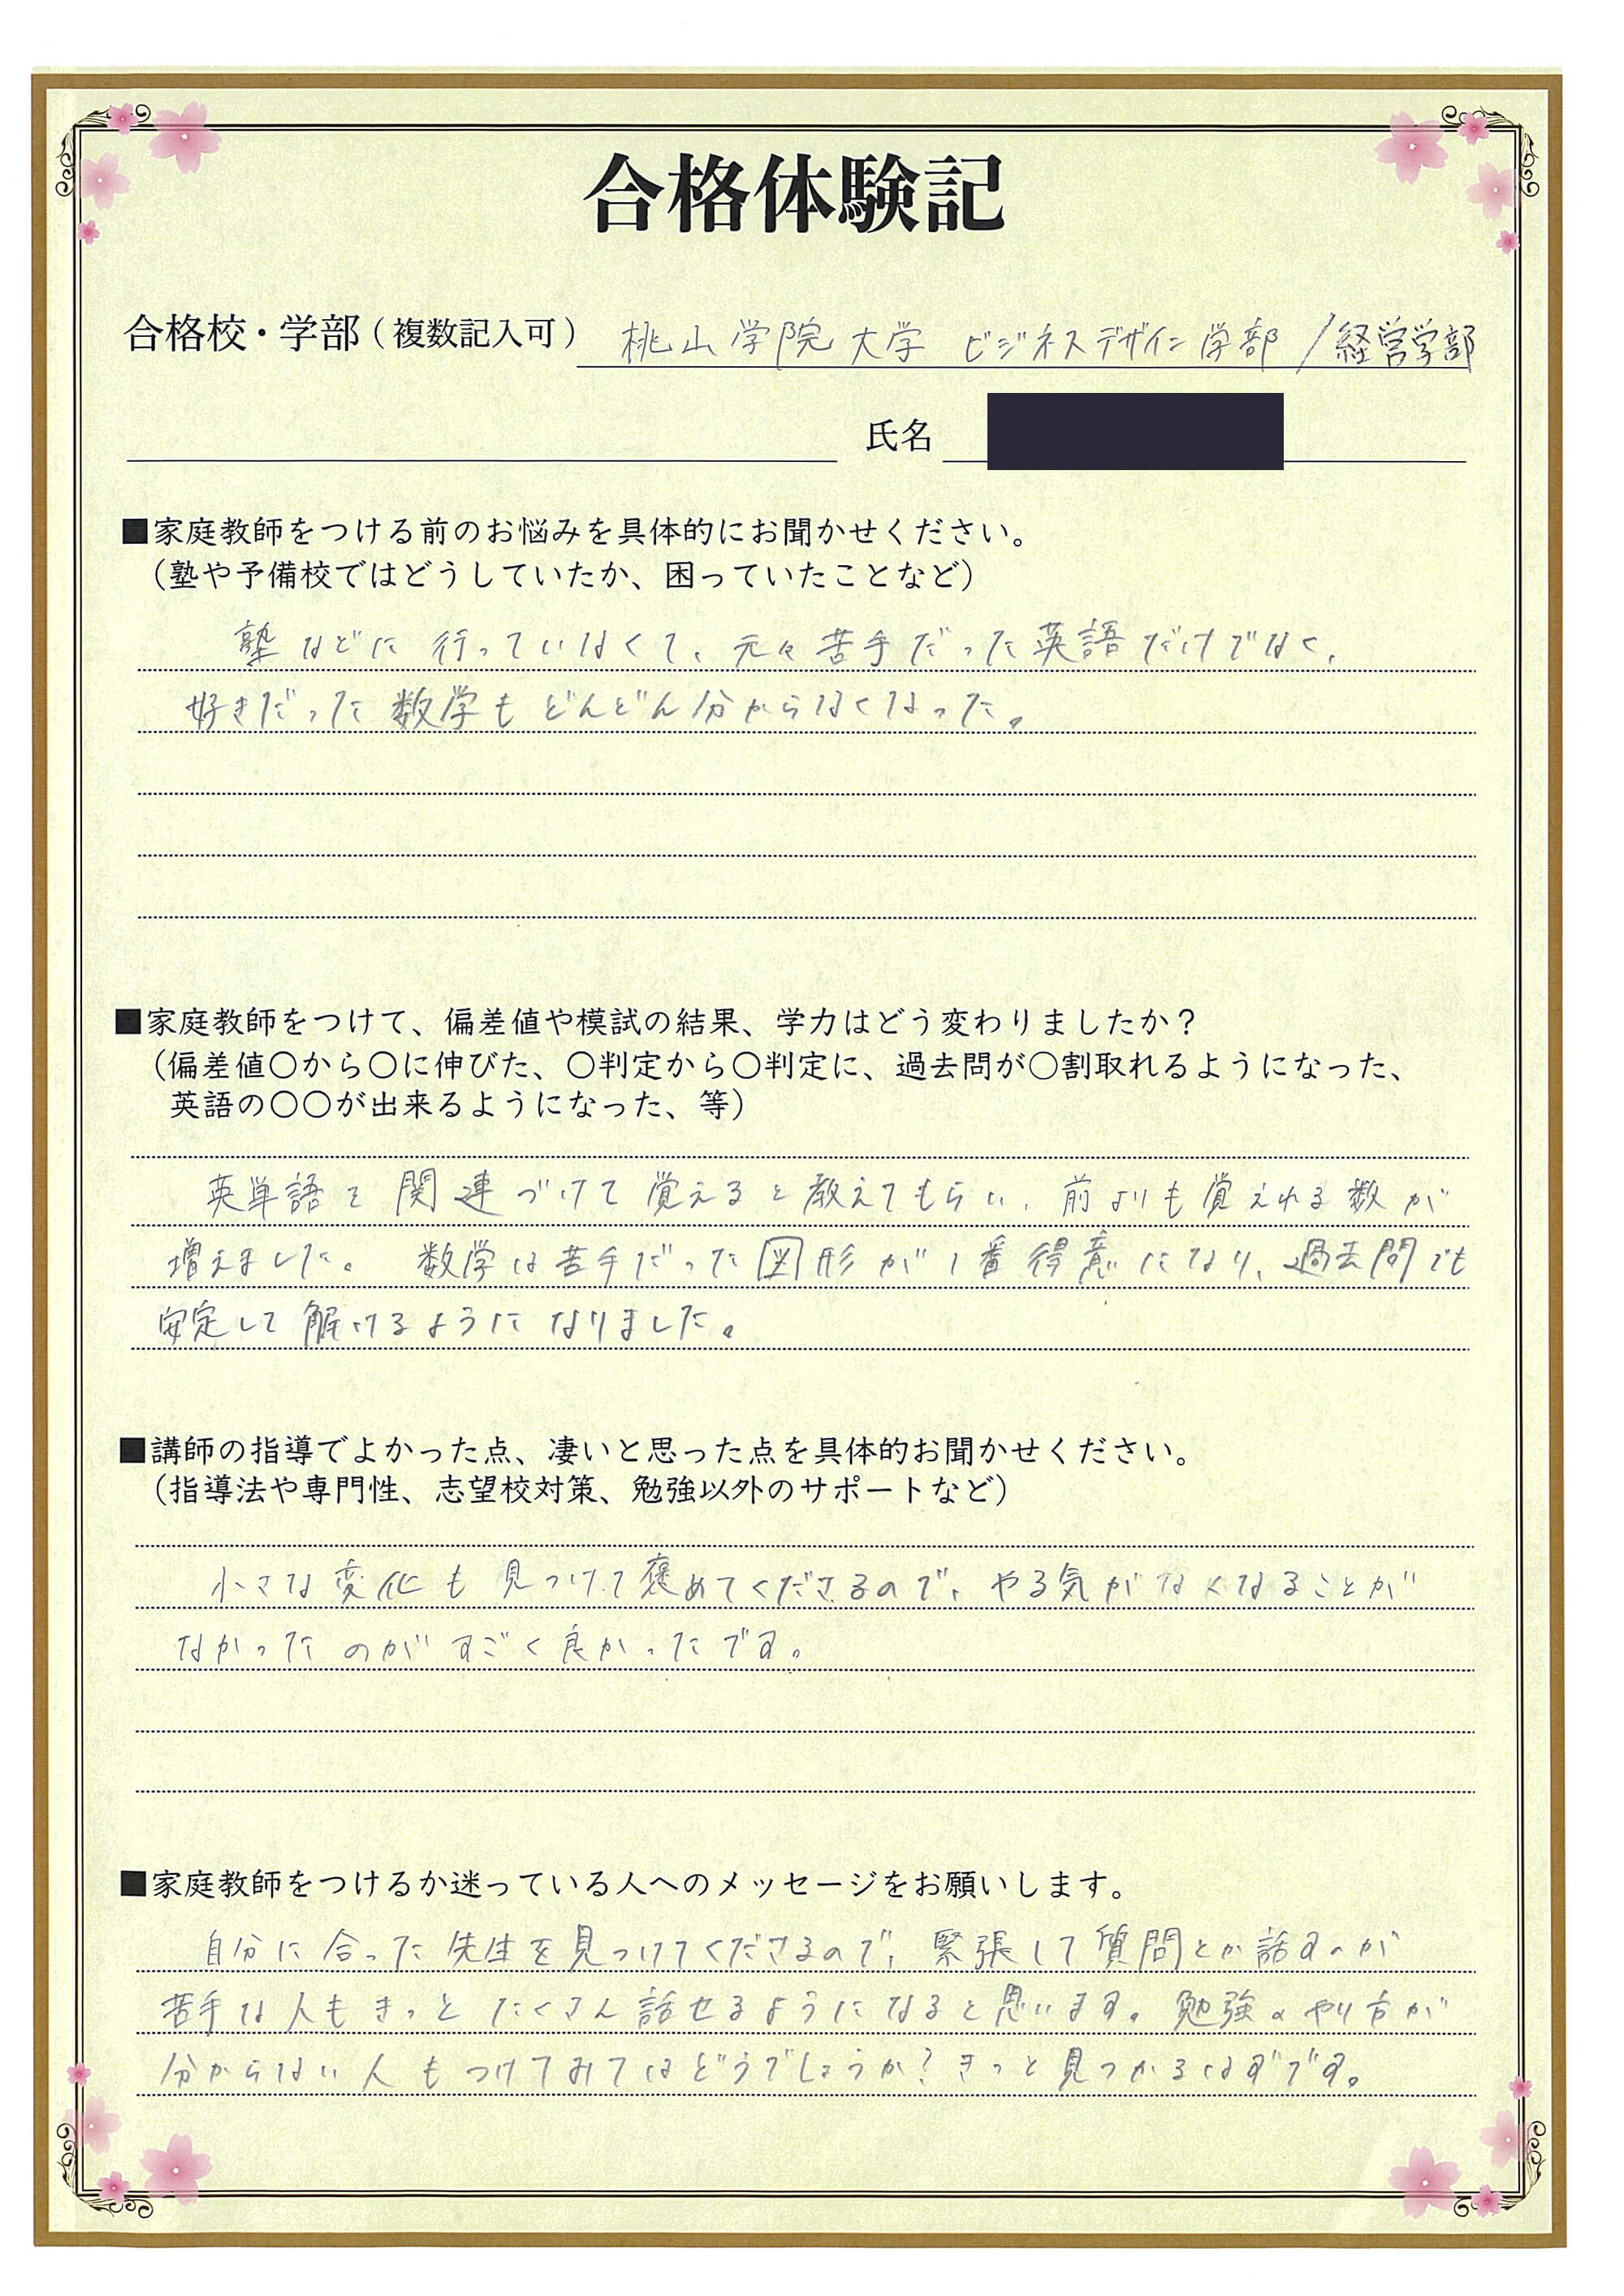 合格体験記
合格校・学部（複数記入可） 桃山学院大学 ビジネスデザイン学部 / 経営学部
氏名
■家庭教師をつける前のお悩みを具体的にお聞かせください。
（塾や予備校ではどうしていたか、困っていたことなど）
塾などに行っていなくて、元々苦手だった英語だけでなく、
好きだった数学もどんどん分からなくなった。
■家庭教師をつけて、偏差値や模試の結果、学力はどう変わりましたか？
（偏差値〇から〇に伸びた、〇判定から〇判定に、過去問が〇割取れるようになった、
英語の〇〇が出来るようになった、等）
英単語を関連づけて覚えると教えてもらい、前よりも覚えれる数が
増えました。 数学は苦手だった図形が1番得意になり、過去問でも
安定して解けるようになりました。
■講師の指導でよかった点、凄いと思った点を具体的お聞かせください。
（指導法や専門性、志望校対策、勉強以外のサポートなど）
小さな変化も見つけて褒めてくださるので、やる気がなくなることが
なかったのがすごく良かったです。
■家庭教師をつけるか迷っている人へのメッセージをお願いします。
自分に合った先生を見つけてくださるので、緊張して質問とか話すのが
苦手な人もきっとたくさん話せるようになると思います。勉強のやり方が
分からない人もつけてみてはどうでしょうか？きっと見つかるはずです。